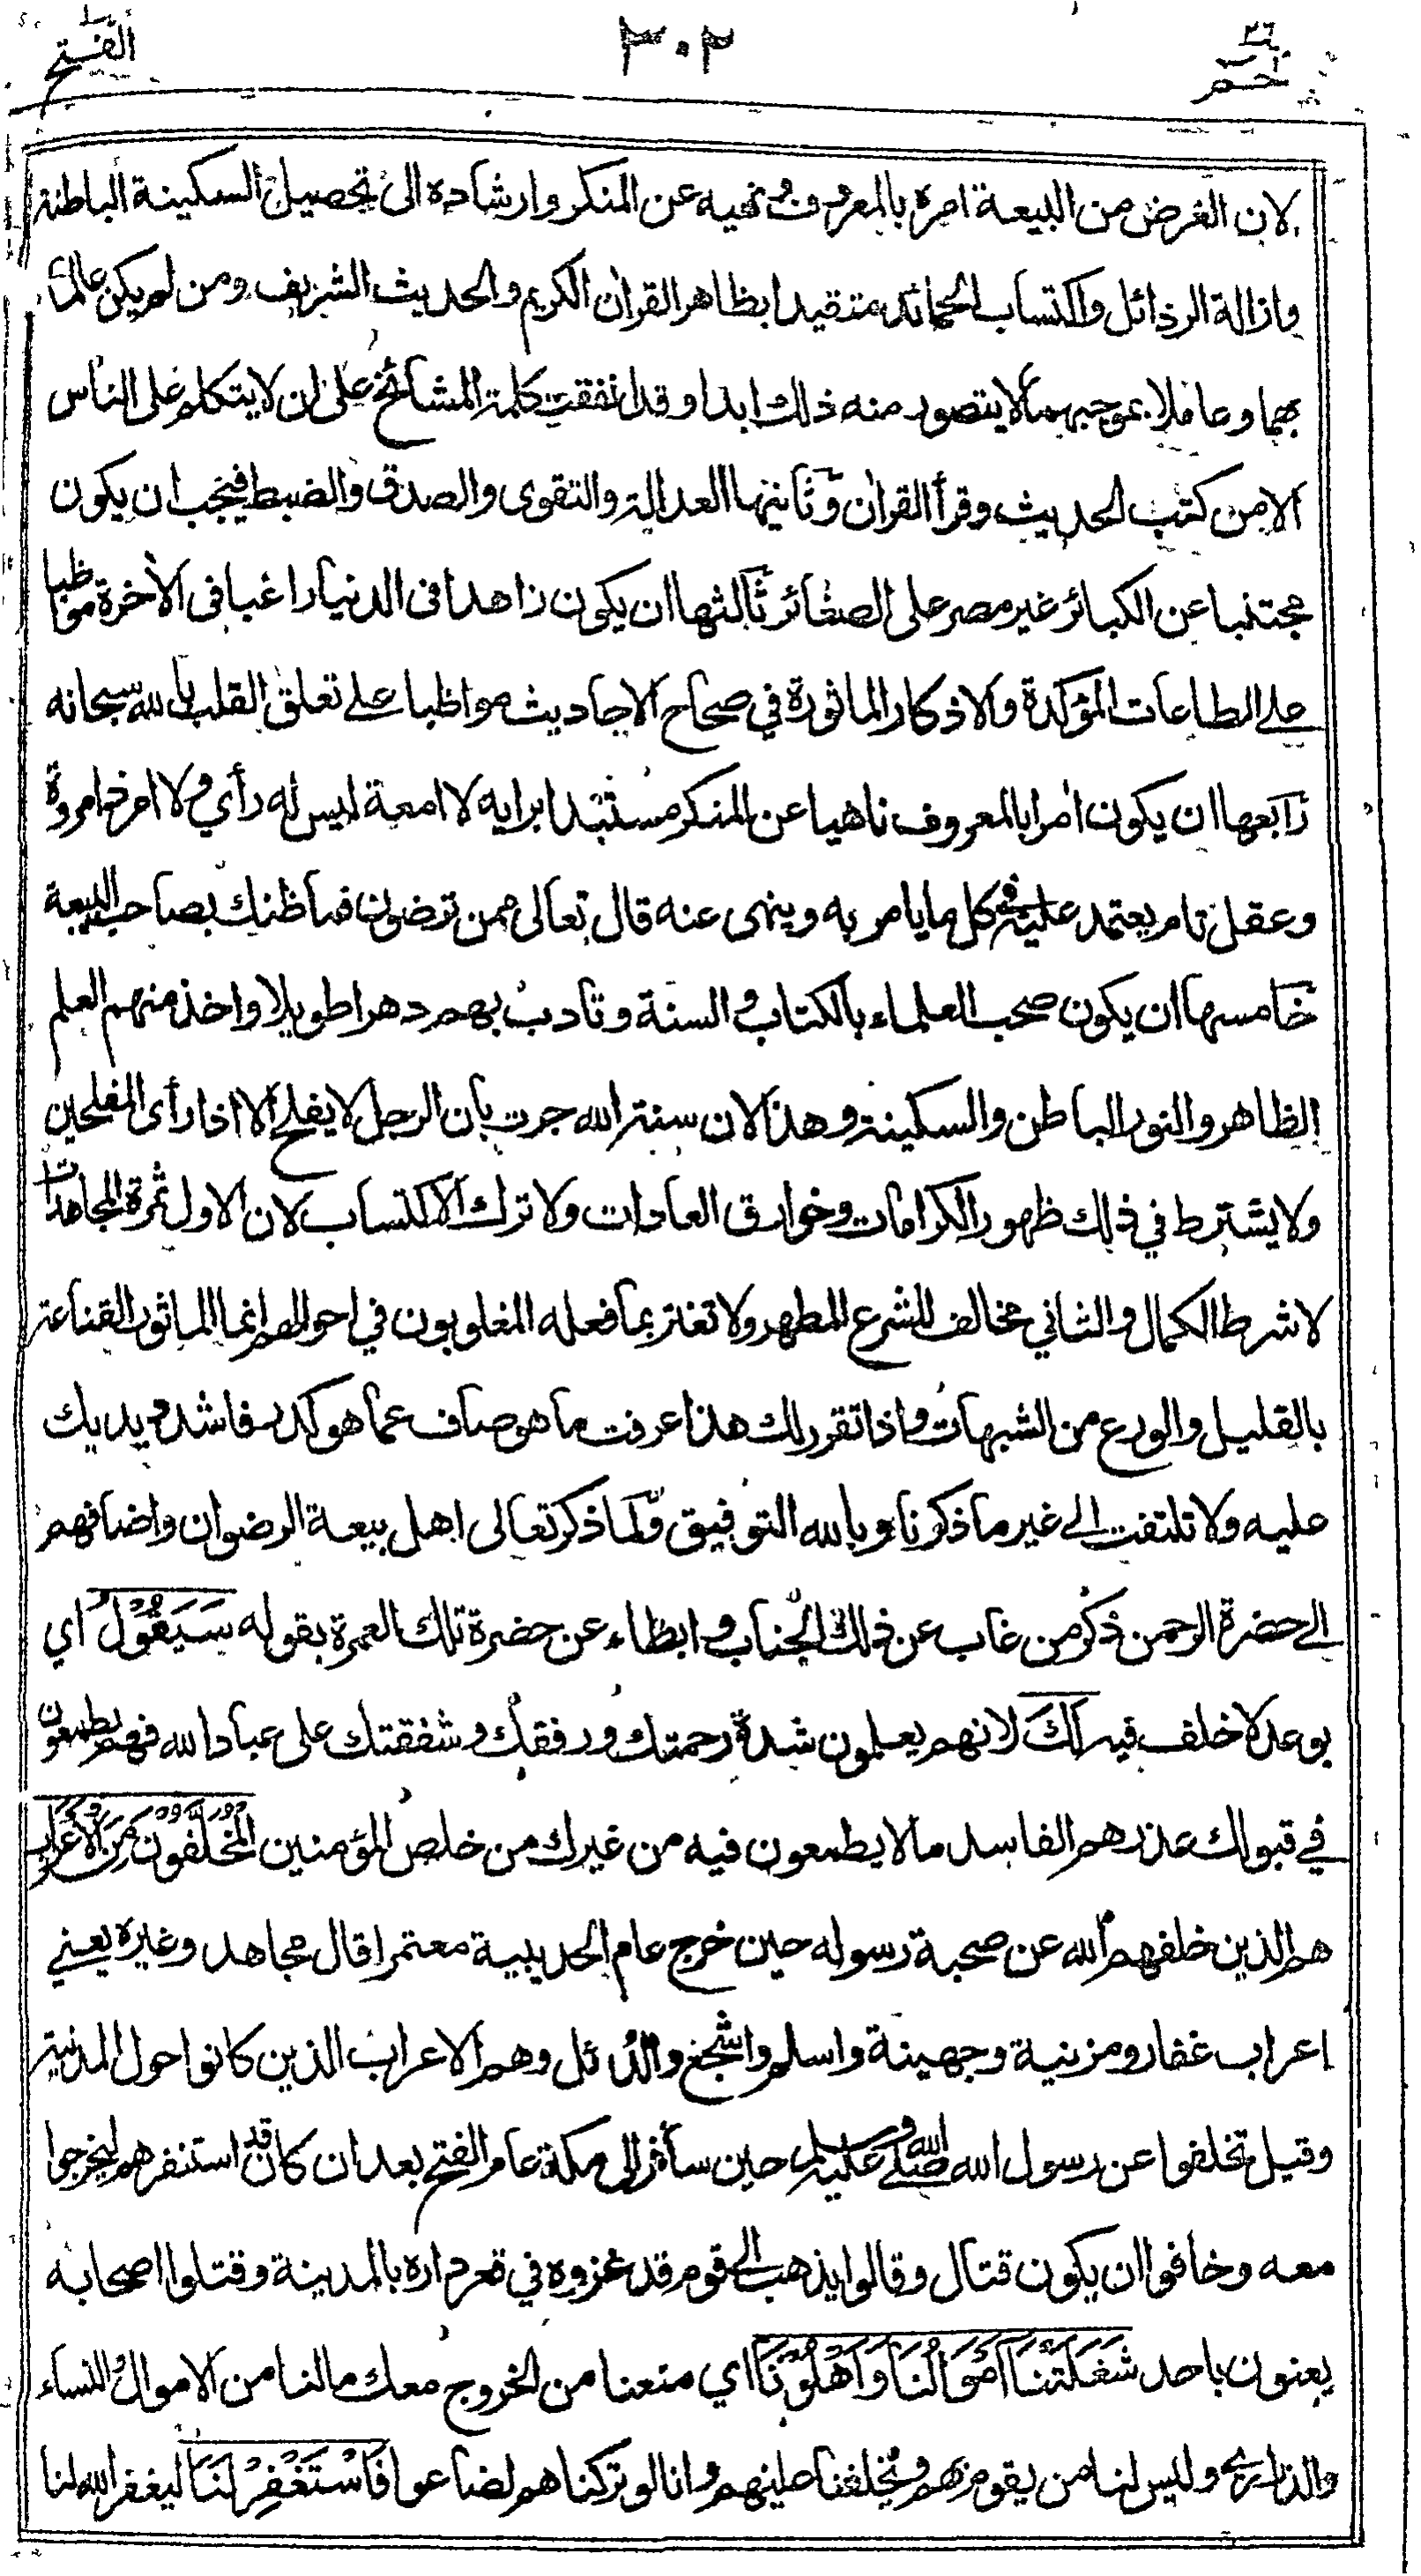 حم ٢٦
٣٠٢
الفتح
لان الغرض من البيعة امره بالمعروف ونهيه عن المنكر وارشاده الى تحصيل السكينة الباطنة
وازالة الرذائل واكتساب الحمائد متقيدا بظاهر القران الكريم والحديث الشريف ومن لم يكن عالما
بهما وعاملا بموجبهما لا يتصور منه ذلك ابدا وقد اتفقت كلمة المشائخ على ان لا يتكلم على الناس
الا من كتب الحديث وقرأ القران وثانيتها العدالة والتقوى والصدق والضبط فيجب ان يكون
مجتنبا عن الكبائر غير مصر على الصغائر ثالثها ان يكون زاهدا في الدنيا راغبا في الاخرة مواظبا
على الطاعات المؤكدة والاذكار الماثورة في صحاح الاحاديث مواظبا على تعلق القلب بالله سبحانه
رابعها ان يكون امرا بالمعروف ناهيا عن المنكر مستبدا برايه لا امعة ليس له رأي ولا امر ذا مروة
وعقل تام يعتمد عليه في كل ما يامر به وينهى عنه قال تعالى ممن ترضون فما ظنك بصاحب البيعة
خامسها ان يكون صحب العلماء بالكتاب والسنة وتادب بهم دهرا طويلا واخذ منهم العلم
الظاهر والنور الباطن والسكينة وهذا لان سنة الله جرت بان الرجل لا يفلح الا اذا رأى المفلحين
ولا يشترط في ذلك ظهور الكرامات وخوارق العادات ولا ترك الاكتساب لان الاول ثمرة المجاهدات
لا شرط الكمال والثاني مخالف للشرع المطهر ولا تغتر بما فعله المغلوبون في احوالهم انما الماثور القناعة
بالقليل والورع من الشبهات واذا تقرر لك هذا عرفت ما هو صاف عما هو كدر فاشدد يديك
عليه ولا تلتفت الى غير ما ذكرناه وبالله التوفيق ولما ذكر تعالى اهل بيعة الرضوان واضافهم
الى حضرة الرحمن ذكر من غاب عن ذلك الجناب وابطاء عن حضرة تلك العمرة بقوله سَيَقُوْلُ اي
بوعد لا خلف فيه لَكَ لانهم يعلمون شدة رحمتك ورفقك وشفقتك على عباد الله فهم يطمعون
في قبولك عذرهم الفاسد ما لا يطمعون فيه من غيرك من خلص المؤمنين الْمُخَلَّفُوْنَ مِنَ الْاَعْرَابِ
هم الذين خلفهم الله عن صحبة رسوله حين خرج عام الحديبية معتمرا قال مجاهد وغيره يعني
اعراب غفار ومزنية وجهينة واسلم واشجع والدئل وهم الاعراب الذين كانوا حول المدنية
وقيل تخلفوا عن رسول الله صلى الله عليه وسلم حين سافر الى مكة عام الفتح بعد ان كان قد استنفرهم ليخرجوا
معه وخافوا ان يكون قتال وقالوا يذهب الى قوم قد غزوه في قعر داره بالمدينة وقتلوا اصحابه
يعنون باحد شَغَلَتْنَا اَمْوَالُنَا وَاَهْلُوْنَا اي منعنا من الخروج معك مالنا من الاموال والنساء
والذراري وليس لنا من يقوم بهم ويخلفنا عليهم وانا لو تركناهم لضاعوا فَاسْتَغْفِرْ لَنَا ليغفر الله لنا